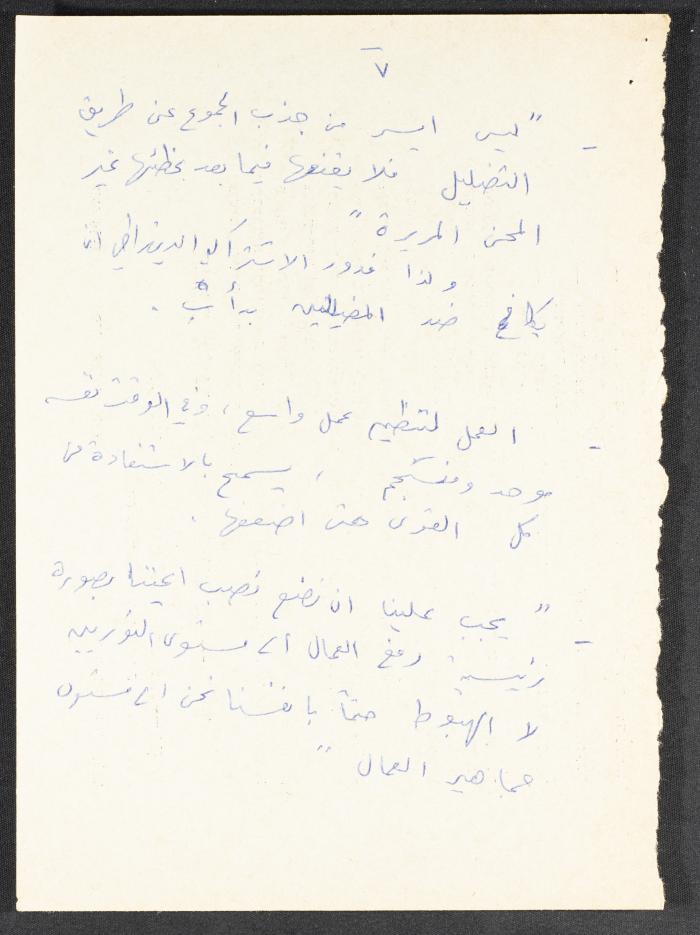 ٧
- "ليس ايسر من جذب الجموع عن طريق
التضليل فلا يقنعها فيما بعد بخطئها غير
المحن المريرة"
ولذا فدور الاشتراكي الديمقراطي ان
يكافح ضد المضللين بدأب.
- العمل لتنظيم عمل واسع، وفي الوقت نفسه
موحد ومنسجم، يسمح بالاستفادة من
كل القوى حتى اضعفها.
- "يجب علينا ان نضع نصب اعيننا بصورة
رئيسية رفع العمال الى مستوى الثوريين
لا الهبوط حتماً بانفسنا نحن الى مستوى
جماهير العمال"